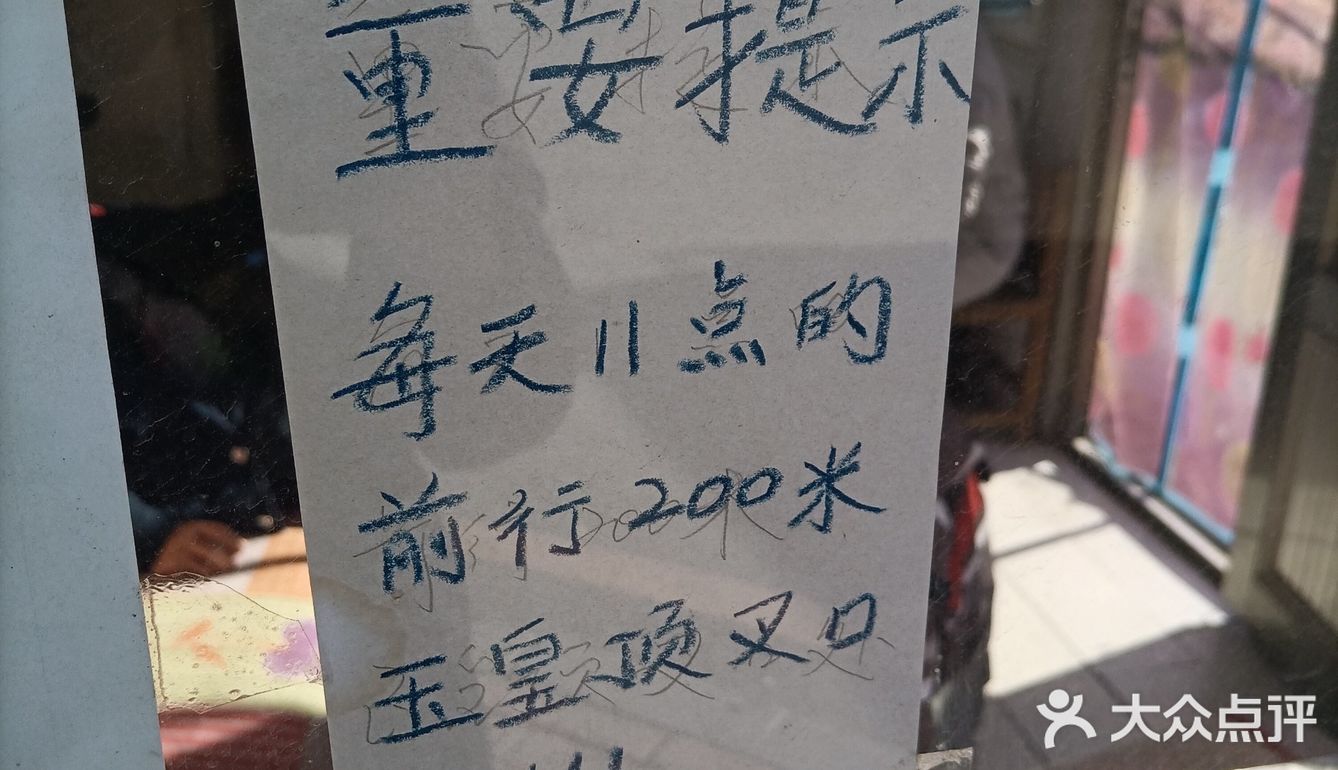 重要提示
每天11点的
前行200米
玉皇顶叉口
大众点评